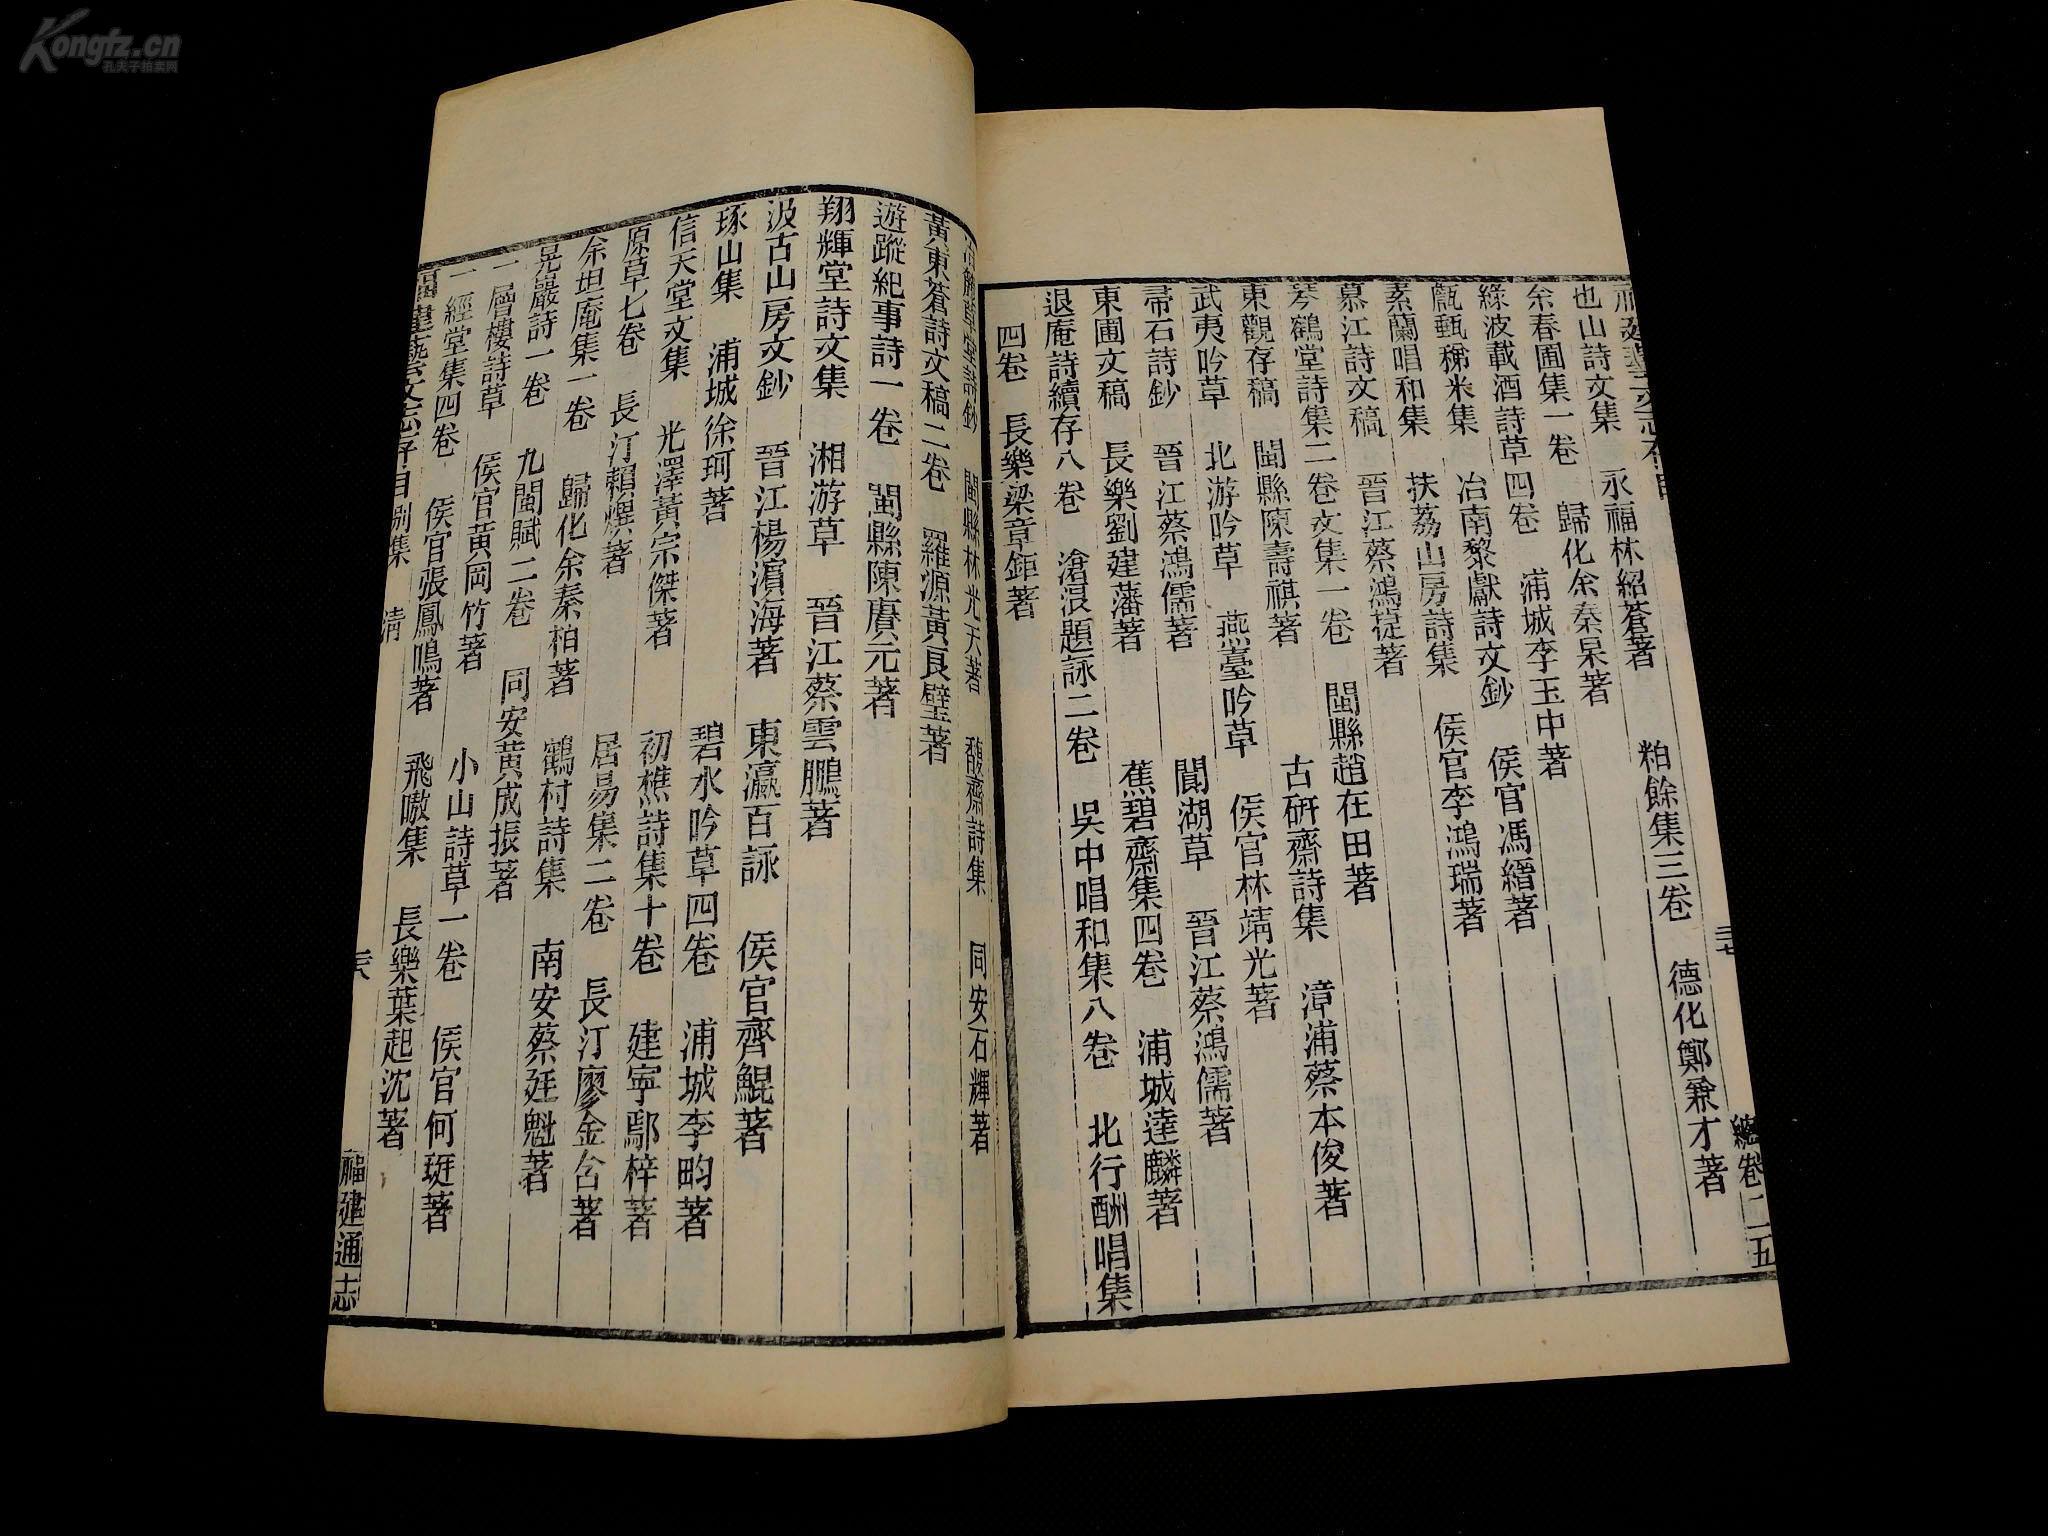 Kongfz.cn
孔夫子拍卖网
也山詩文集 永福林紹蒼著 粕餘集三卷 德化鄭兼才著
余春圃集一卷 歸化余秦杲著
綠波載酒詩草四卷 浦城李玉中著
甔甀稊米集 冶南黎獻詩文鈔 侯官馮縉著
素蘭唱和集 扶荔山房詩集 侯官李鴻瑞著
慕江詩文稿 晉江蔡鴻捷著
琴鶴堂詩集二卷文集一卷 閩縣趙在田著
東觀存稿 閩縣陳壽祺著 古研齋詩集 漳浦蔡本俊著
武夷吟草 北游吟草 燕臺吟草 侯官林靖光著
帚石詩鈔 晉江蔡鴻儒著 閬湖草 晉江蔡鴻儒著
東圃文稿 長樂劉建藩著 蕉碧齋集四卷 浦城達麟著
退庵詩續存八卷 滄浪題詠二卷 吳中唱和集八卷 北行酬唱集
四卷 長樂梁章鉅著
總卷二五
閩縣林光天著 馥齋詩集 同安石輝著
黃東蒼詩文稿二卷 羅源黃良璧著
遊蹤紀事詩一卷 閩縣陳賡元著
翔輝堂詩文集 湘游草 晉江蔡雲鵬著
汲古山房文鈔 晉江楊濱海著 東瀛百詠 侯官齊鯤著
琢山集 浦城徐珂著 碧水吟草四卷 浦城李畇著
信天堂文集 光澤黃宗傑著 初樵詩集十卷 建寧鄢梓著
原草七卷 長汀賴煜著 居易集二卷 長汀廖金台著
余坦庵集一卷 歸化余秦柏著 鶴村詩集 南安蔡廷魁著
晃巖詩一卷 九閩賦二卷 同安黄成振著
一層樓詩草 侯官黃岡竹著 小山詩草一卷 侯官何珽著
一經堂集四卷 侯官張鳳鳴著 飛嗷集 長樂葉起沈著
福建藝文志存目 別集 清 福建通志